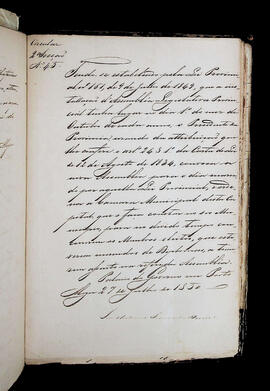 Circular
2ª Secção
Nº 45
Tendo se estabelecido pela Lei Provincial
nº 151, de 9 de julho de 1849, que a ins-
tallação d'Assemblea Legislativa Provin-
cial tenha lugar no dia 1º do mez de
Outubro de cada anno, o Presidente da
Provincia, usando da attribuição que
lhe confere o art. 24 § 1º da Carta de Lei
de 12 de Agosto de 1834, convoca a
nova Assemblea para o dia marca-
do por aquella Lei Provincial, e
a Camara Municipal desta Ca-
pital, que faça constar no seu Mu-
nicipio, para no devido tempo con-
correrem os Membros eleitos, que este-
jam munidos de Diplomas, a toma-
rem assento na referida Assemblea.
Palacio do Governo em Porto
Alegre 27 de Julho de 1850